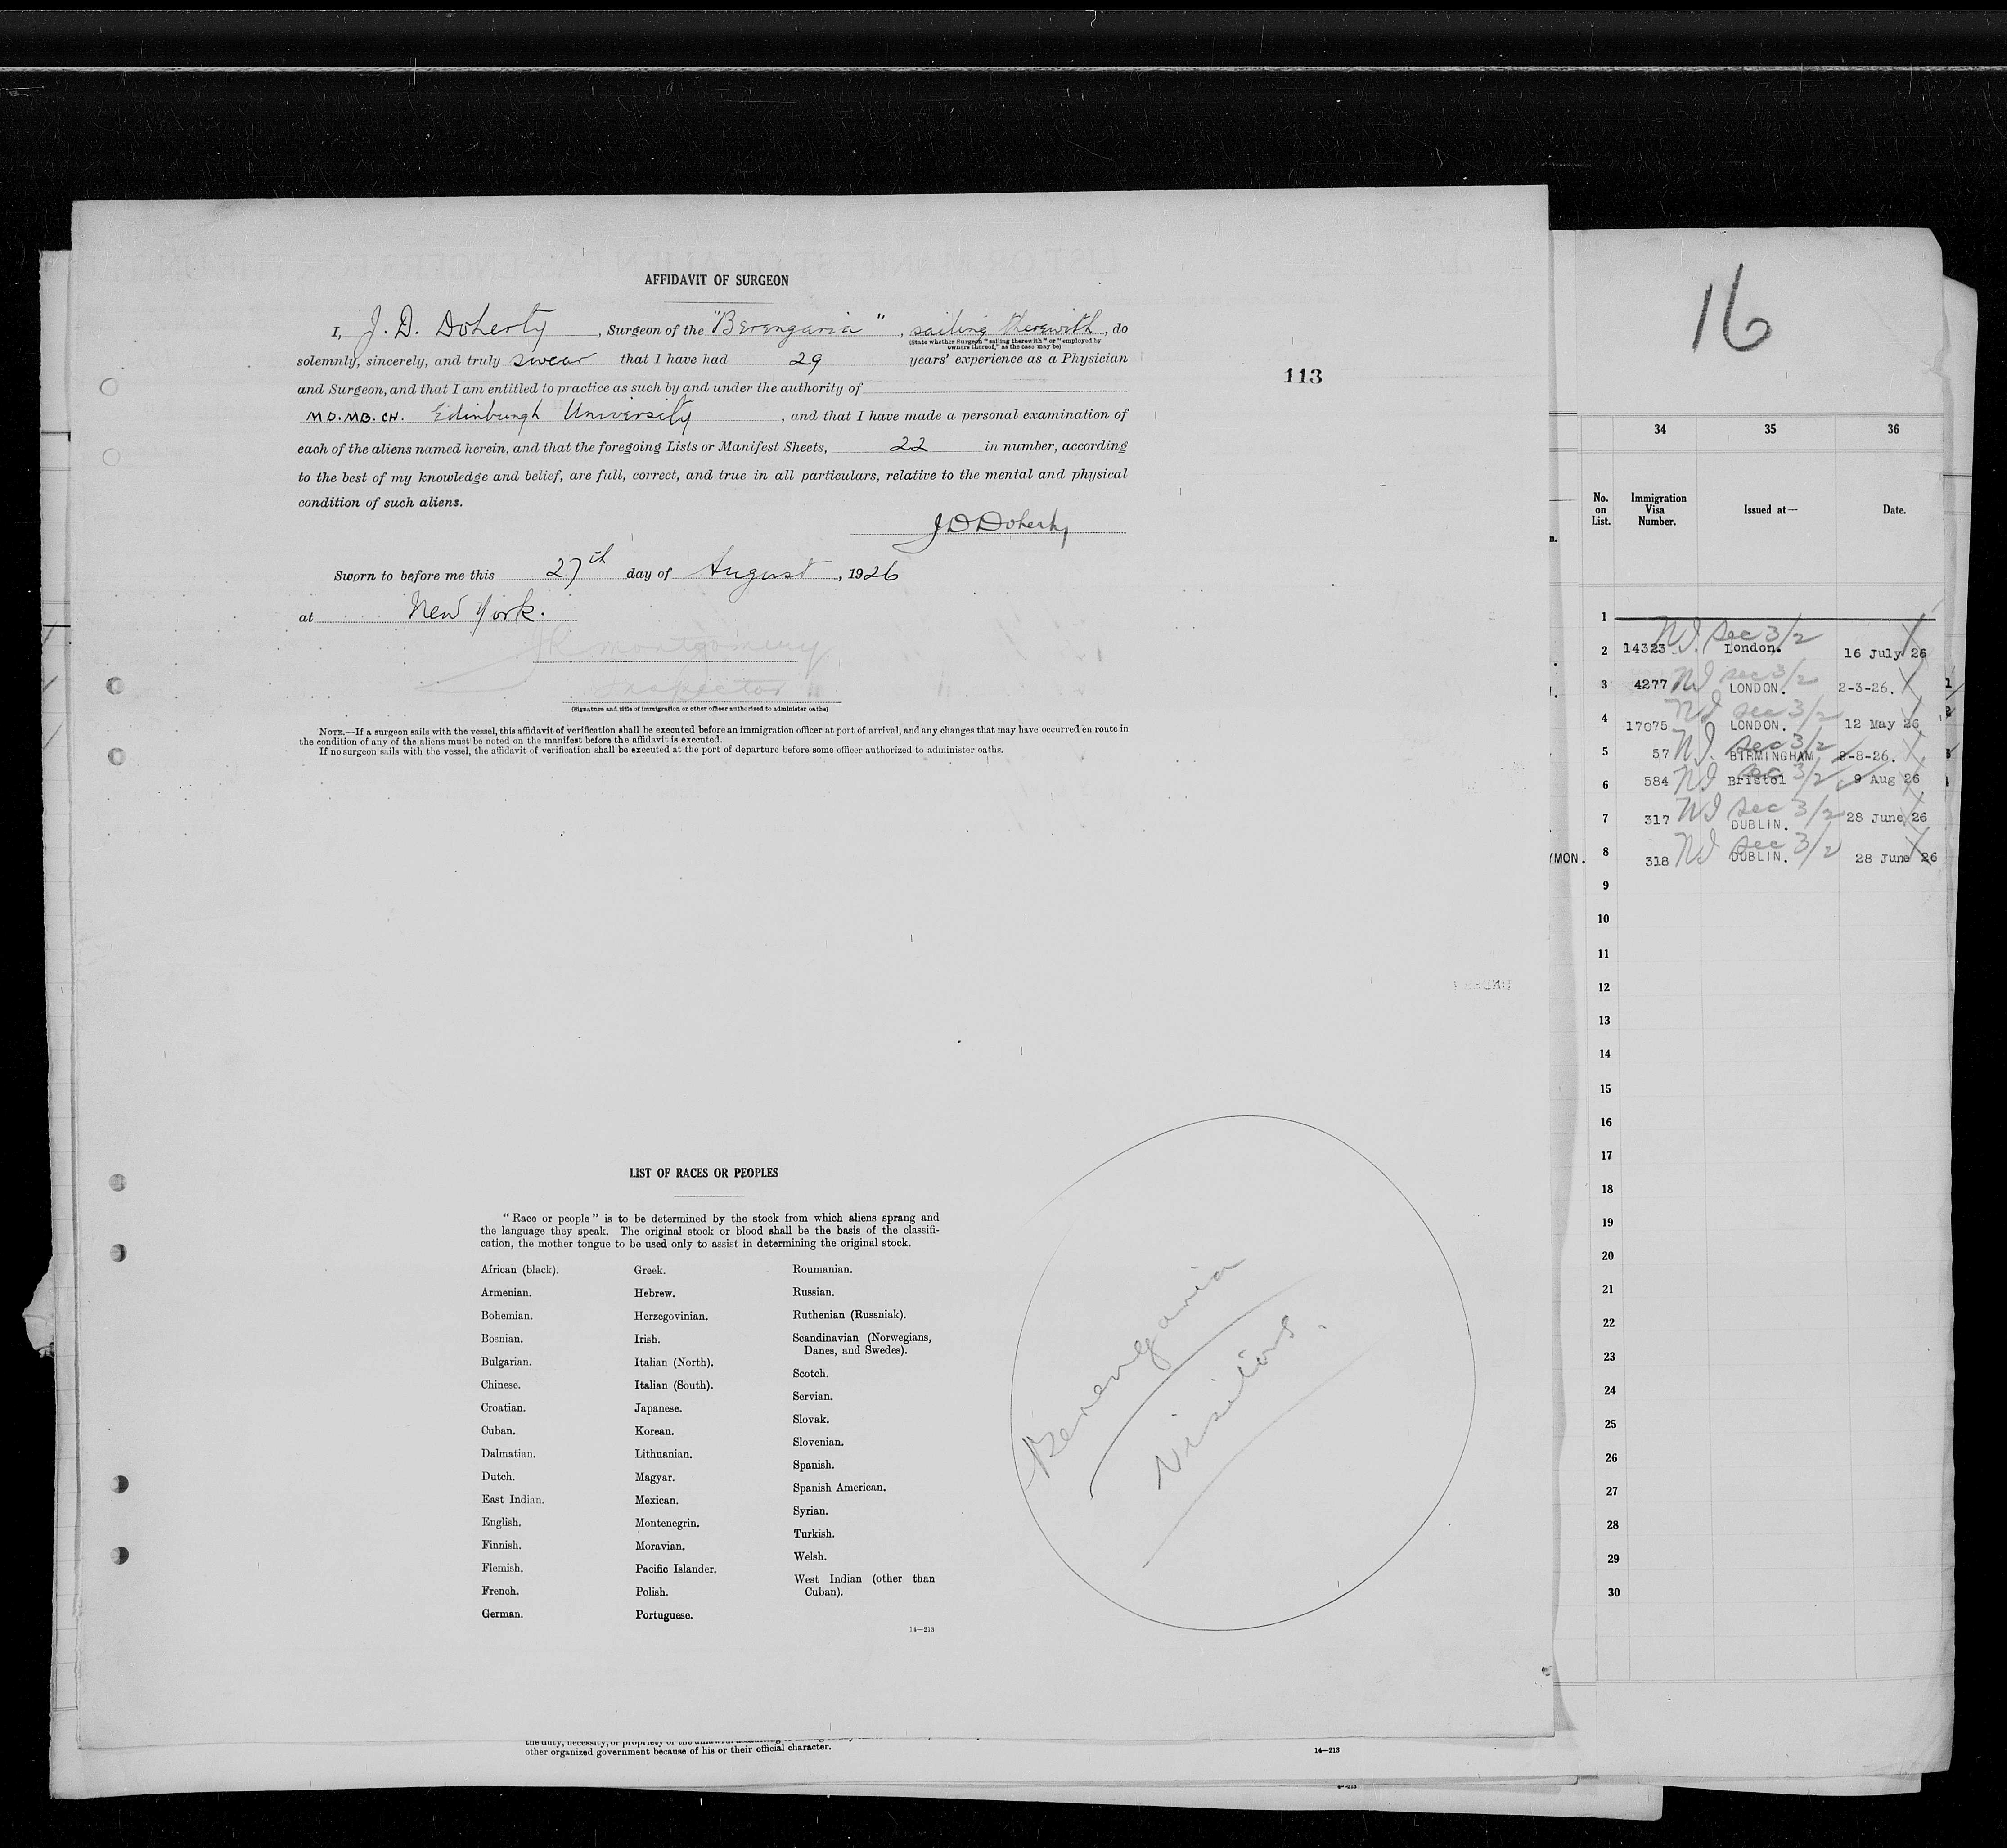 AFFIDAVIT OF SURGEON
I, J. D. Doherty, Surgeon of the "Berengaria", sailing therewith, do
(State whether Surgeon "sailing therewith" or "employed by
owners thereof," as the case may be)
solemnly, sincerely, and truly swear that I have had 29 years' experience as a Physician
and Surgeon, and that I am entitled to practice as such by and under the authority of
MD. MB. CH. Edinburgh University, and that I have made a personal examination of
each of the aliens named herein, and that the foregoing Lists or Manifest Sheets, 22 in number, according
to the best of my knowledge and belief, are full, correct, and true in all particulars, relative to the mental and physical
condition of such aliens.
J D Doherty
Sworn to before me this 27th day of August, 1926
at New York.
Montgomery
Inspector
(Signature and title of immigration or other officer authorized to administer oaths)
NOTE.—If a surgeon sails with the vessel, this affidavit of verification shall be executed before an immigration officer at port of arrival, and any changes that may have occurred en route in
the condition of any of the aliens must be noted on the manifest before the affidavit is executed.
If no surgeon sails with the vessel, the affidavit of verification shall be executed at the port of departure before some officer authorized to administer oaths.
113
LIST OF RACES OR PEOPLES
"Race or people" is to be determined by the stock from which aliens sprang and
the language they speak. The original stock or blood shall be the basis of the classifi-
cation, the mother tongue to be used only to assist in determining the original stock.
African (black).
Armenian.
Bohemian.
Bosnian.
Bulgarian.
Chinese.
Croatian.
Cuban.
Dalmatian.
Dutch.
East Indian.
English.
Finnish.
Flemish.
French.
German.
Greek.
Hebrew.
Herzegovinian.
Irish.
Italian (North).
Italian (South).
Japanese.
Korean.
Lithuanian.
Magyar.
Mexican.
Montenegrin.
Moravian.
Pacific Islander.
Polish.
Portuguese.
Roumanian.
Russian.
Ruthenian (Russniak).
Scandinavian (Norwegians,
Danes, and Swedes).
Scotch.
Servian.
Slovak.
Slovenian.
Spanish.
Spanish American.
Syrian.
Turkish.
Welsh.
West Indian (other than
Cuban).
14—213
Berengaria
Visitors.
other organized government because of his or their official character.
14—213
16
34 35 36
No. on List. Immigration Visa Number. Issued at— Date.
1
2 14323 NI sec 3/2 London. 16 July 26
3 4277 NI sec 3/2 LONDON. 2-3-26.
4 17075 NI sec 3/2 LONDON. 12 May 26
5 57 NI sec 3/2 BIRMINGHAM 9-8-26.
6 584 NI sec 3/2 Bristol 9 Aug 26
7 317 NI sec 3/2 DUBLIN. 28 June 26
YMON. 8 318 NI sec 3/2 DUBLIN. 28 June 26
9
10
11
12
13
14
15
16
17
18
19
20
21
22
23
24
25
26
27
28
29
30